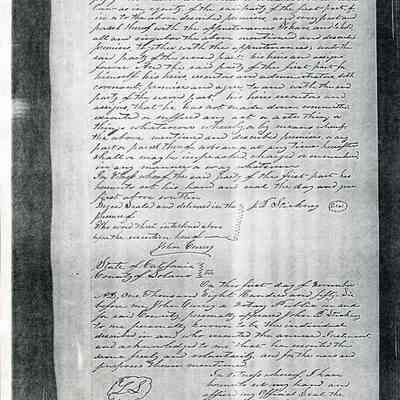 in equity of the said party of the first part of
in & to the above described premises and every part and
parcel thereof with the appurtenances To have and to hold
all and singular the above mentioned and described
premises together with the appurtenances, unto the
said party of the second part, his heirs and assigns
forever. And the said party of the first part for
himself his heirs executors and administrators doth
covenant promise and agree to and with the said
party of the second part his heirs executors and
assigns that he has not made done committed
executed or suffered any act or acts thing or
things whatsoever whereby or by means whereof
the above mentioned and described premises or any
part or parcel thereof now are or at any time hereafter
shall or may be impeached charged or incumbered
in any manner or way whatsoever.
In witness whereof the said party of the first part has
hereunto set his hand and seal the day and year
first above written
Signed Sealed and delivered in the
presence of
The word interlined above
John Currey
State of California
County of Solano
On this first day of November
A.D. One Thousand Eight Hundred and fifty
before me John Currey a Notary Public in and
for said County, personally appeared John B.
to me personally known to be the individual
described in and who executed the annexed Instrument
and acknowledged to me that he executed the
same freely and voluntarily and for the uses and
purposes therein mentioned
In witness whereof, I have
hereunto set my hand and
affixed my Official Seal the